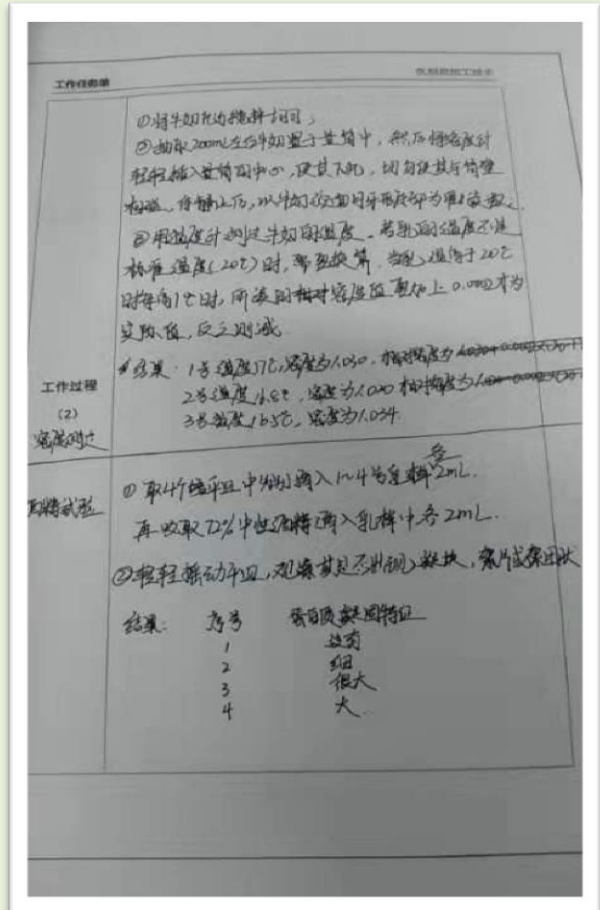 工作任务单
乳制品加工技术
①将牛奶充分搅拌均匀；
②抽取200mL左右牛奶置于量筒中，然后将密度计
轻轻插入量筒的中心，使其下沉，切勿使其与筒壁
相碰，待静止后，以牛奶液面月牙形底部为准读数。
③用温度计测定牛奶的温度，若乳的温度不是
标准温度(20℃)时，需要换算，当乳温高于20℃
时每高1℃时，所读的密度值要加上0.0002才为
实际值，反之则减
结果：1号温度17℃，密度为1.030，相对密度为
2号温度16.8℃，密度为1.020 相对密度为
3号温度16.5℃，密度为1.034
工作过程
(2)
密度测定
酒精试验
①取4个培养皿中分别滴入1~4号乳样各2mL.
再吸取72%中性酒精滴入乳样中各2mL.
②轻轻摇动平皿，观察其是否出现凝块，絮片或絮团状
结果： 序号 蛋白质凝固特征
1 没有
2 细
3 很大
4 大